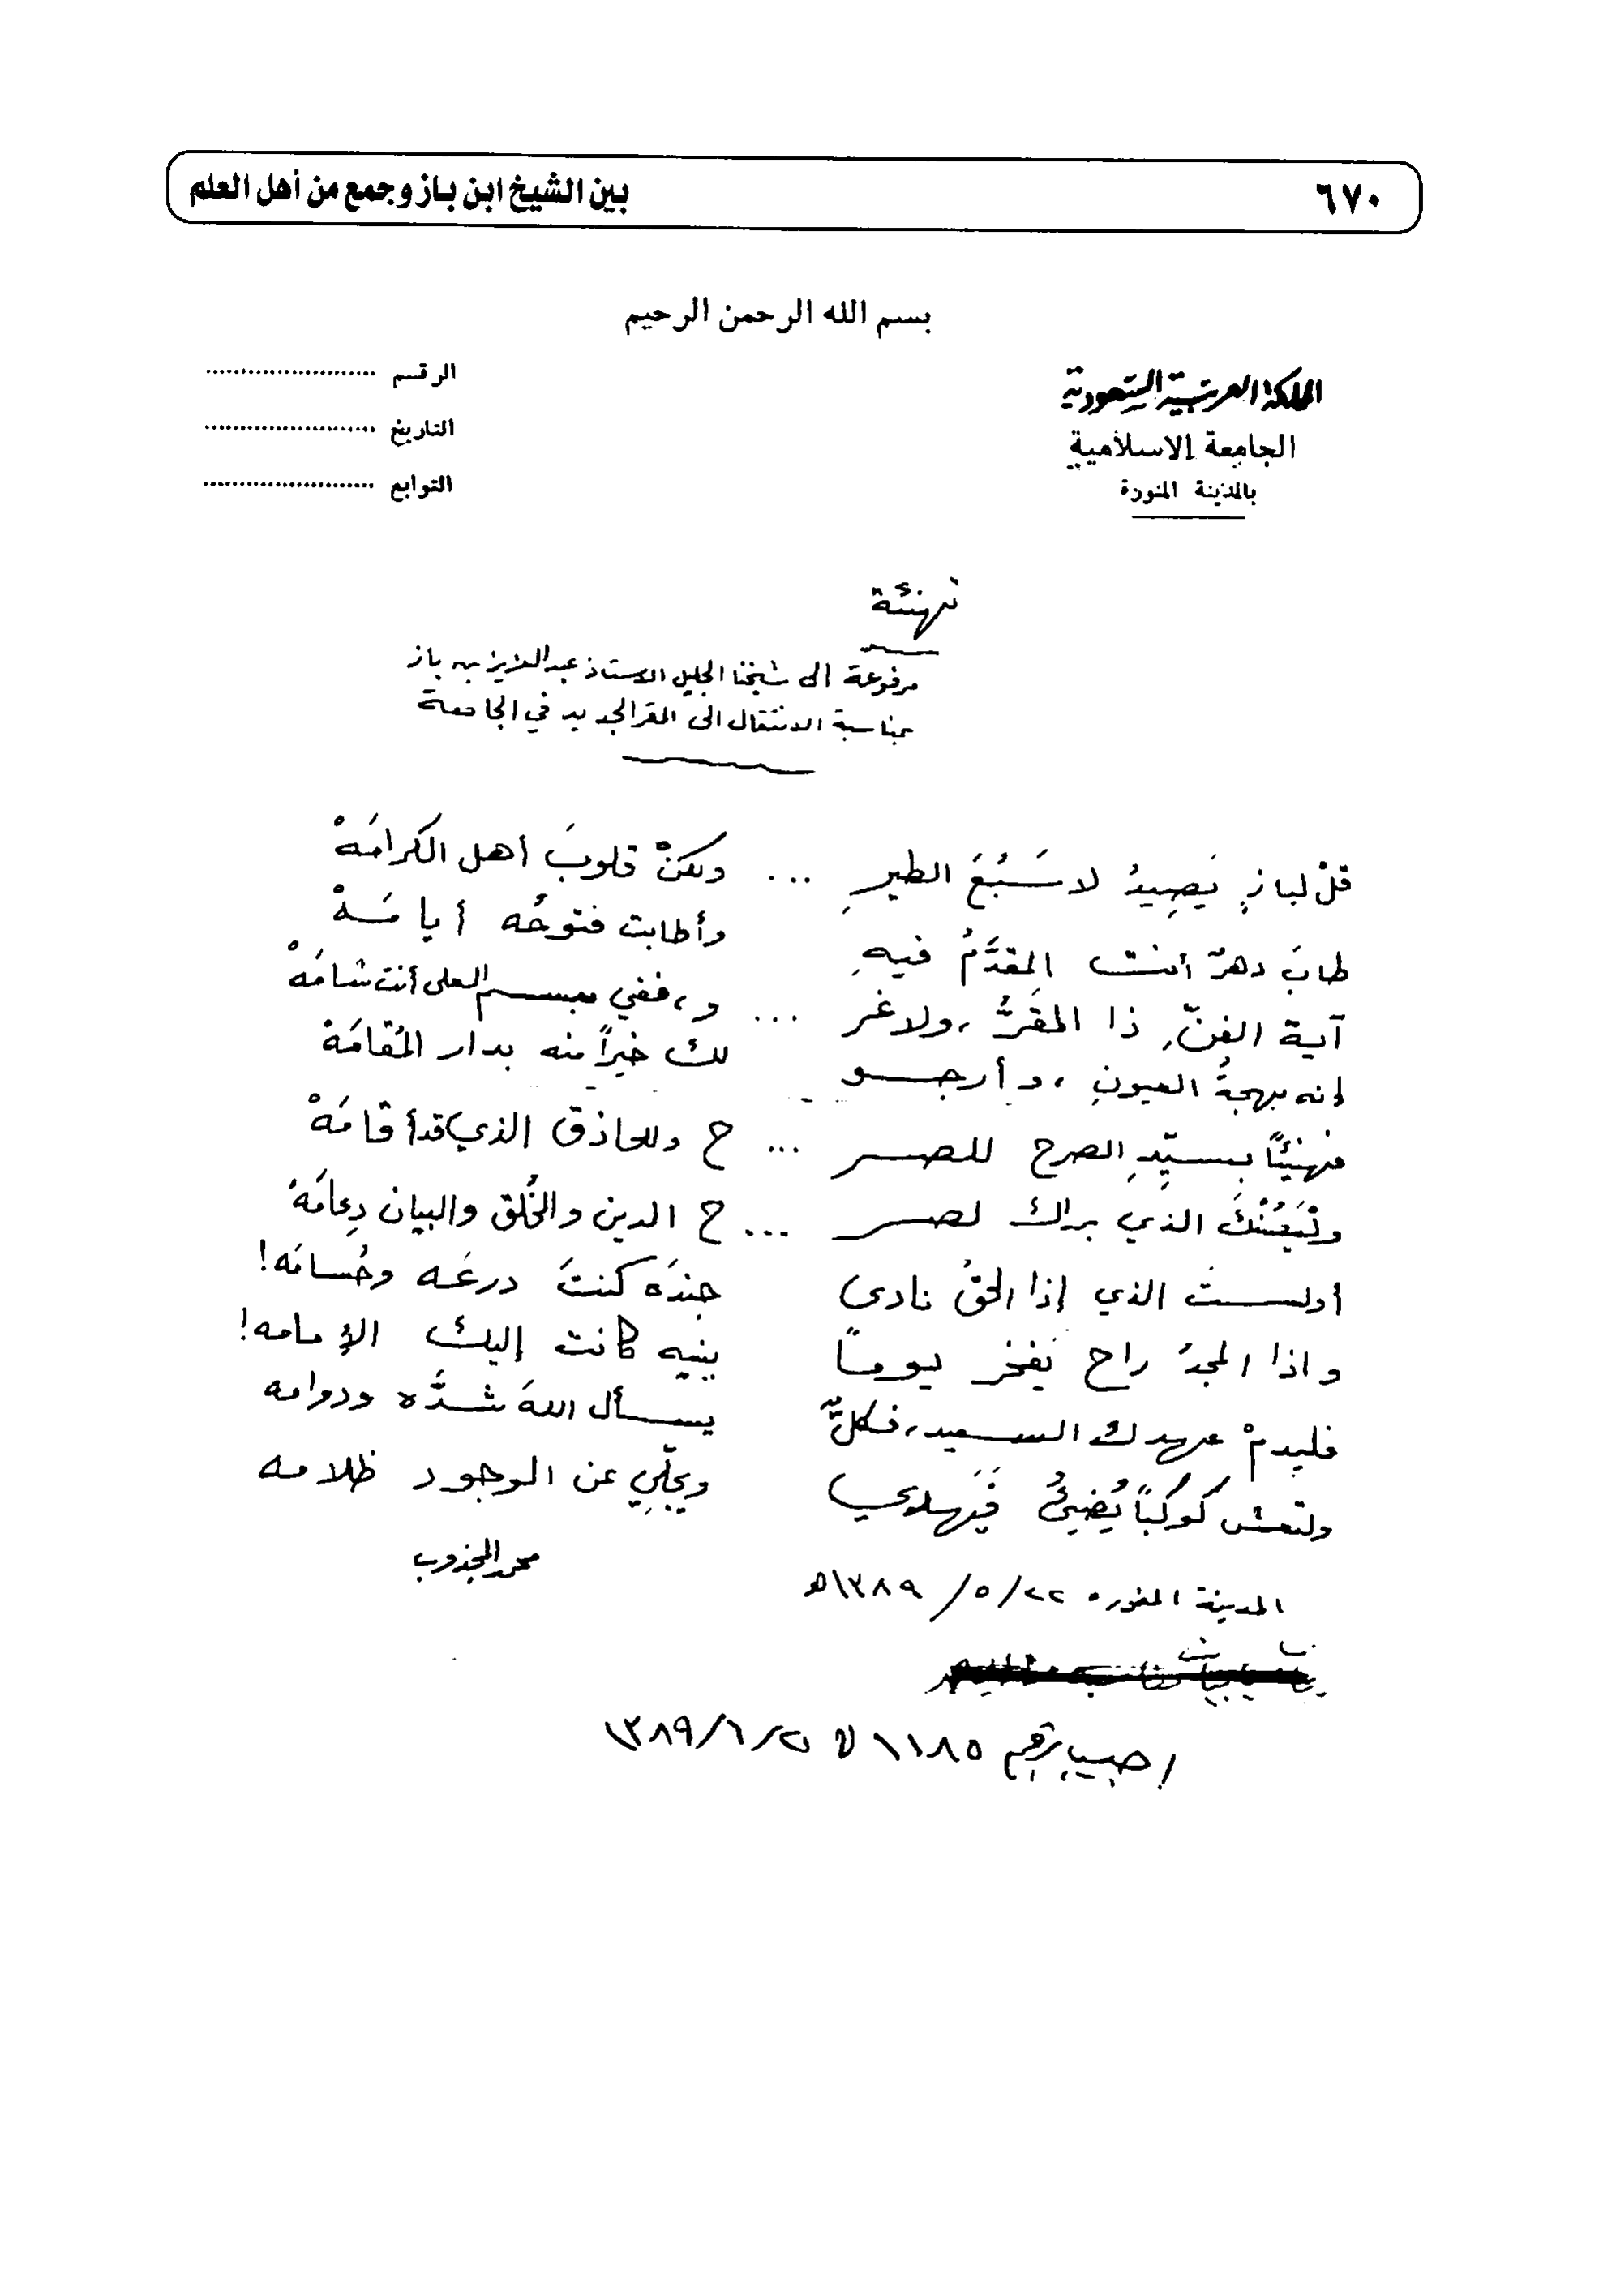 ٦٧٠
بين الشيخ ابن باز وجمع من أهل العلم
بسم الله الرحمن الرحيم
المملكة العربية السعودية
الجامعة الاسلامية
بالمدينة المنورة
الرقم ........................
التاريخ ........................
التوابع ........................
تهنئة
مرفوعة الى شيخنا الجليل الاستاذ عبدالعزيز بن باز
بمناسبة الانتقال الى المقر الجديد في الجامعة
قلْ لبازٍ يَصِيدُ لا سَبُعَ الطيرِ ... ولكنْ قلوبَ أهل الكرامَهْ
طابَ دهرٌ أنت المقدَّمُ فيهِ وأطابت فتوحُه أيامَهْ
آية الفنّ، ذا المقَرُّ، ولا غر ... و، ففي مبسم العلى أنت شامَهْ
إنه بهجةُ العيونِ، وأرجو لك خيراً منه بدار المُقامَهْ
فهنيئاً بسيّدِ الصرح للصر ... ح وللحاذق الذي قد أقامَهْ
ولْيَعُنْكَ الذي براك لصر ... ح الدين والخُلق والبيان دِعامَهْ
أولستَ الذي إذا الحقُ نادى جندَه كنتَ درعَه وحُسامَه!
واذا المجدُ راح يَفخر يوماً ببنيه كانت إليك الإمامه!
فليدمْ عهدك السعيد، فكلٌّ يسأل اللهَ شدَّه ودوامه
ولتعش كوكباً يُضيئُ فَيَهدي ويجلّي عن الوجود ظلامه
محمد المجذوب
المدينة المنوره ٢٢/ ٥/ ١٣٨٩هـ
اجيب برقم ١١٨٥ في ٢/ ٦/ ١٣٨٩